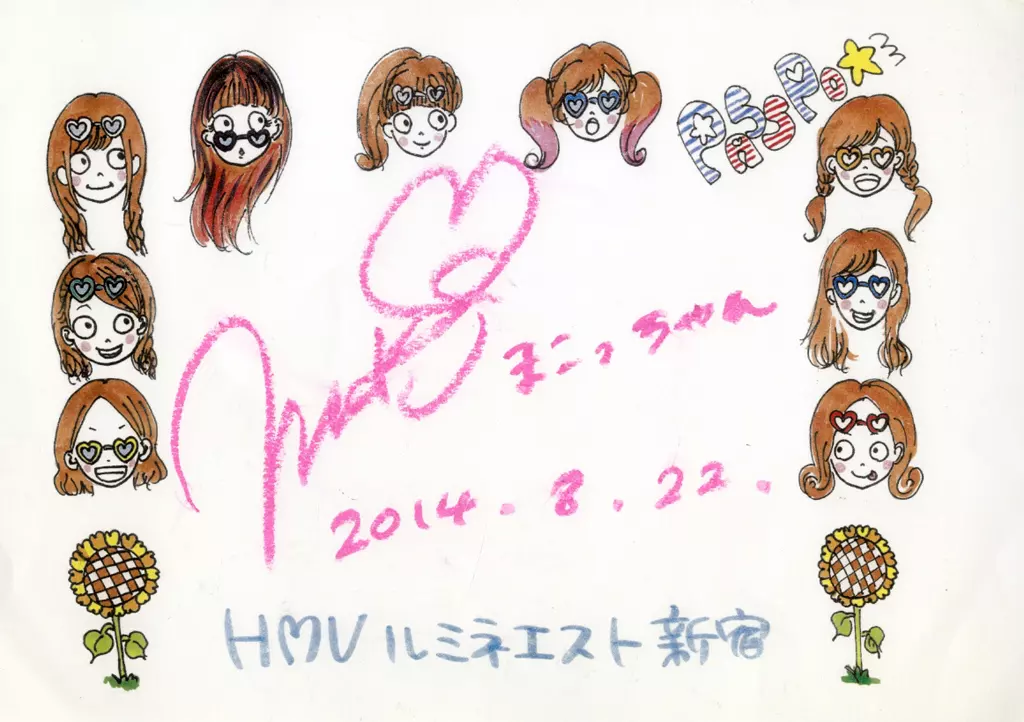 PASSPO☆
まこっちゃん
2014.8.22.
HMV ルミネエスト新宿